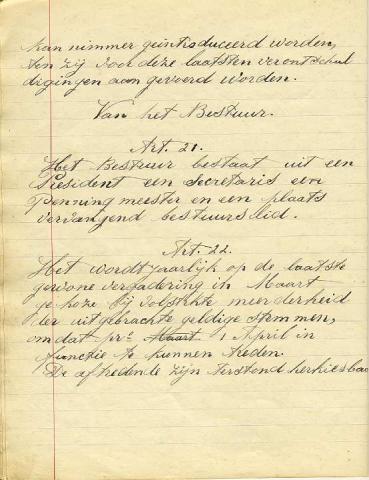 kan nimmer geintroduceerd worden,
ten zij voor deze laatsten verontschul
digingen aan gevoerd worden.
Van het Bestuur.
Art. 21.
Het Bestuur bestaat uit een
President een Secretaris een
Penning meester en een plaats
vervangend bestuurslid.
Art. 22.
Het wordt jaarlijk op de laatste
gewone vergadering in Maart
gekoze bij volstrekte meerderheid
der uitgebrachte geldige stemmen,
om dat pr. Maart 1 April in
functie te kunnen treden.
De aftredende zijn terstond herkiesbaa